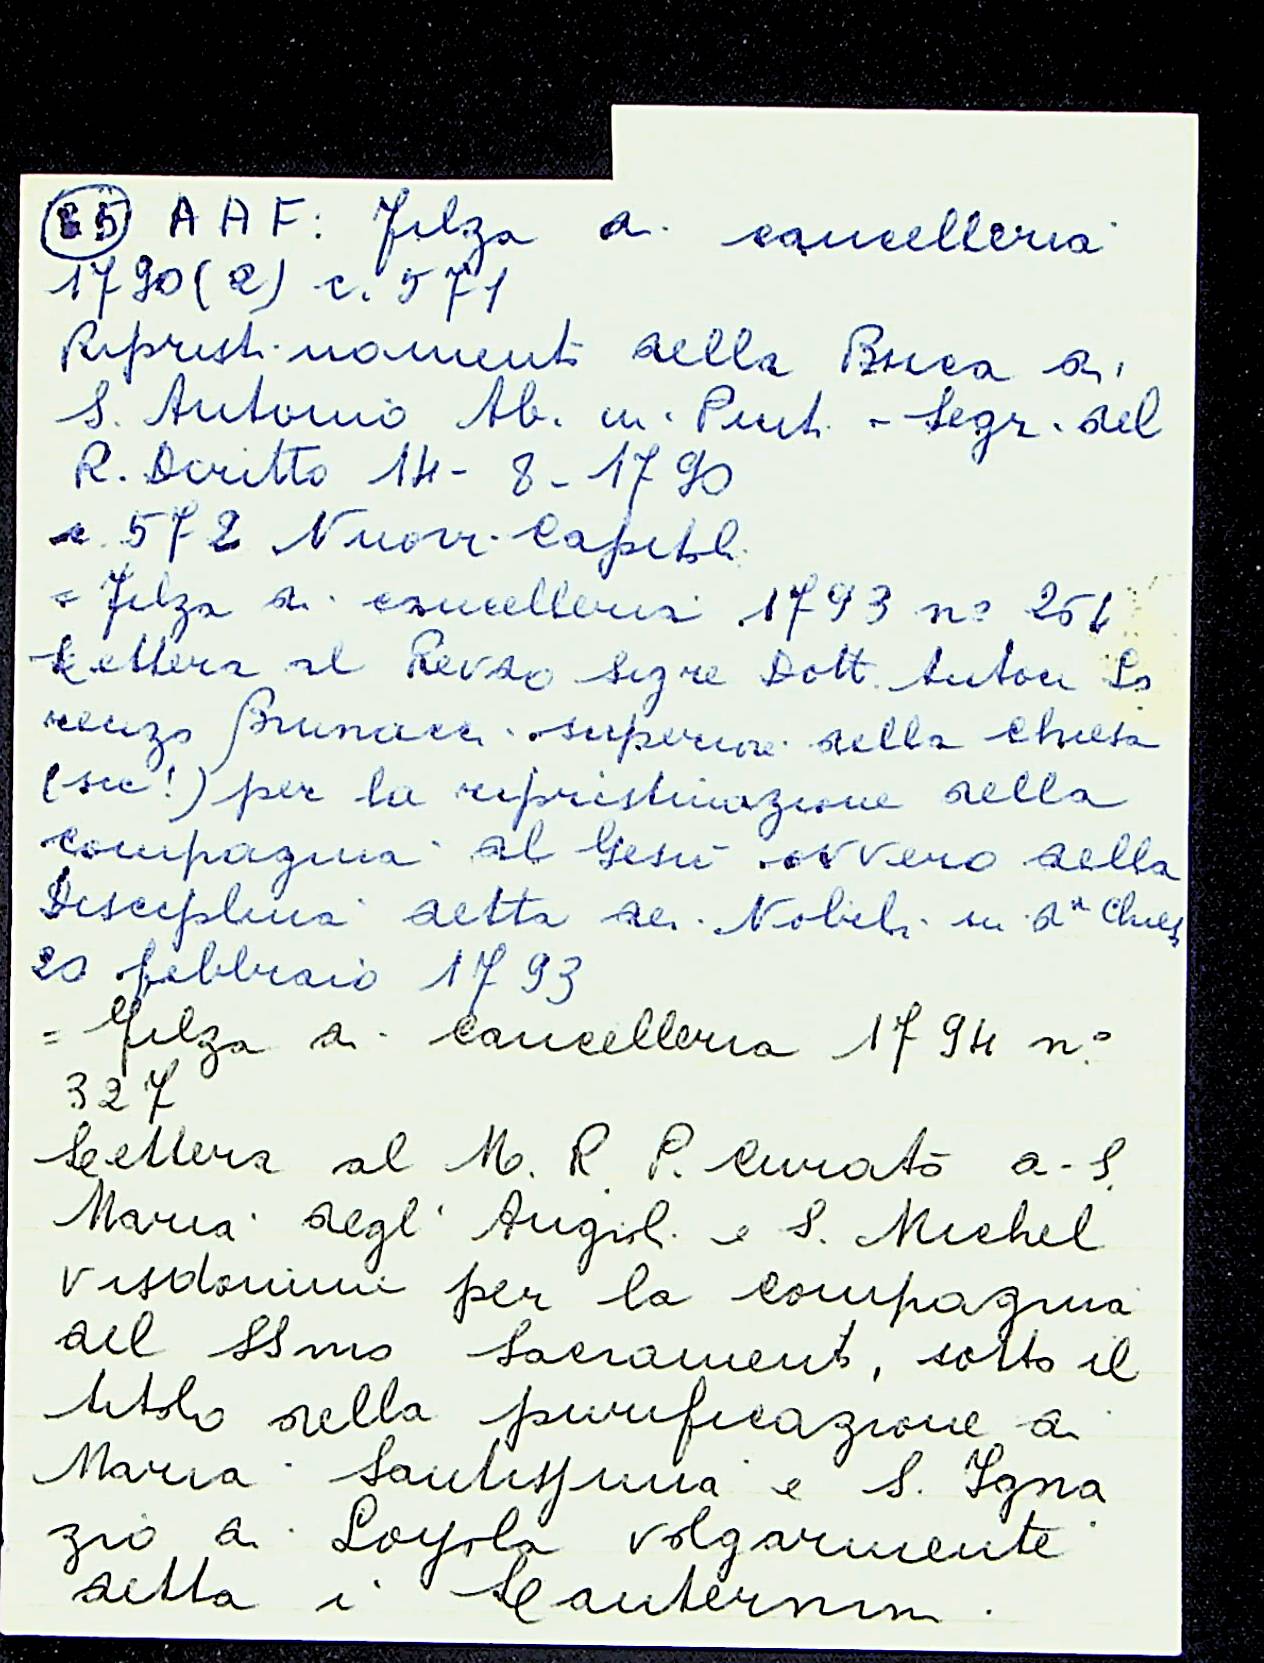 35 AAF: Filza di cancelleria
1790(2) c. 571
Ripristinamento della Buca di
S. Antonio Ab. in Pinti - Segr. del
R. Diritto 14-8-1790
c. 572 Nuovi Capitoli
= Filza di cancelleria 1793 no 251
Lettera al Revdo Segre Dott. Anton Lo
renzo Brunacci superiore della Chiesa
(sic!) per la ripristinazione della
compagnia al Gesù ovvero della
Disciplina detta dei Nobili in da Chies
20 febbraio 1793
= Filza di cancelleria 1794 no
327
Lettera al M. R. P. Curato di S.
Maria degl' Angioli e S. Michel
Visdomini per la compagnia
del SSmo Sacramento, sotto il
titolo della purificazione di
Maria Santissima e S. Igna
zio di Loyola volgarmente
detta i Lanternini.